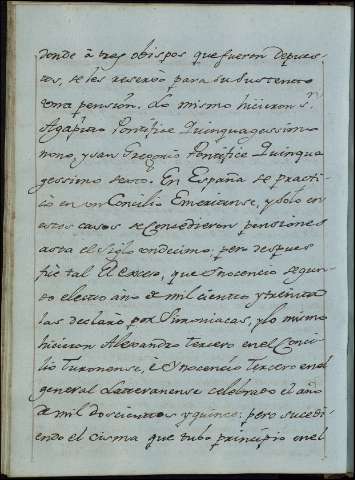 donde à tres obispos que fueron depues-
tos, se les reservò para su sustento
una pensión. Lo mismo hicieron Sn
Agapito Pontifice Quinquagessimo
nono, y san Gregorio Pontifice Quinqua
gessimo sexto. En España se practi-
cò en un Concilio Emeritense, y solo en
estos casos se concedieron pensiones
asta el siglo undecimo, pero despues
fue tal el exceso, que Inocencio segun-
do electo año de mil ciento y treinta
las declarò por Simoniacas, y lo mismo
hicieron Alexandro Tercero en el Conci-
lio Turonense, è Inocencio Tercero en el
general Lateranense celebrado el año
de mil doscientos y quince; pero sucedi-
endo el cisma que tubo principio en el